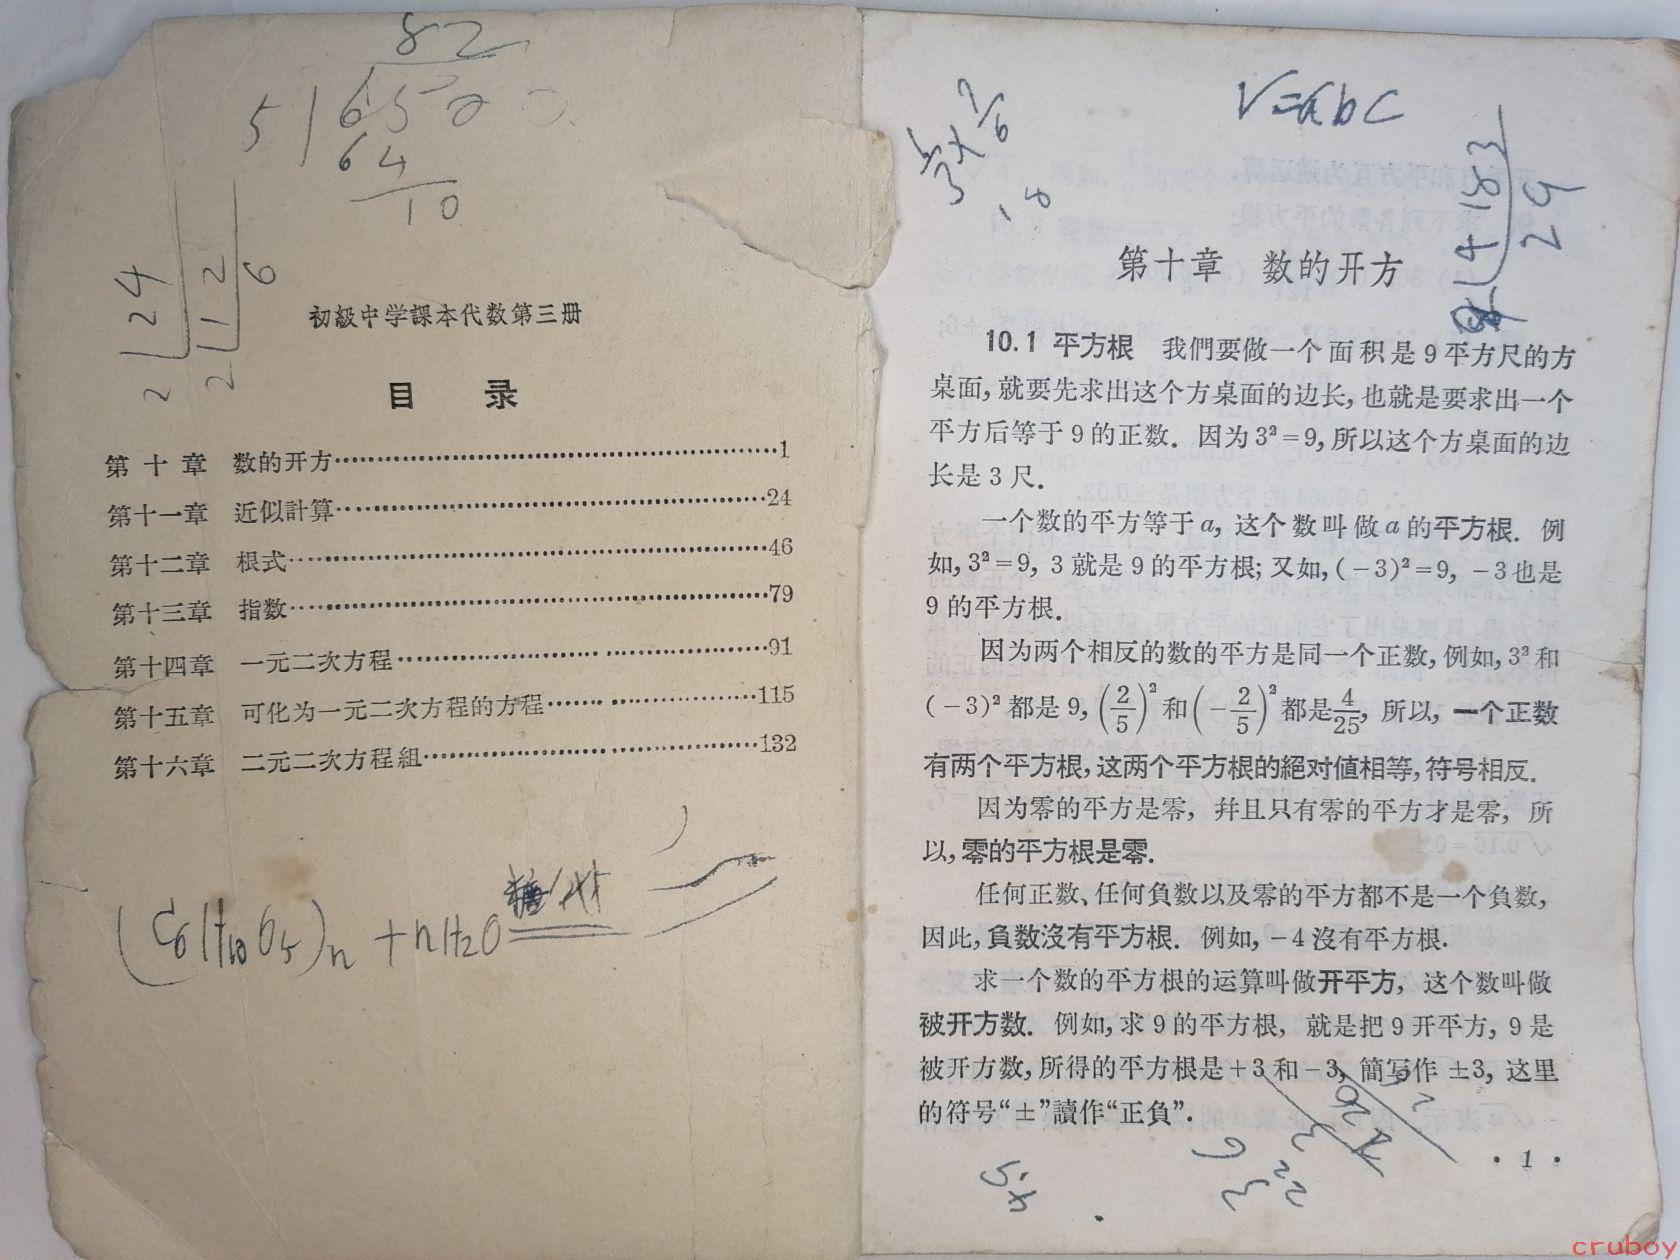 82
5 6500
64
10
2 24
2 12
6
初級中学課本代数第三册
目 录
第十章 数的开方……1
第十一章 近似計算……24
第十二章 根式……46
第十三章 指数……79
第十四章 一元二次方程……91
第十五章 可化为一元二次方程的方程……115
第十六章 二元二次方程組……132
(C6H10O5)n + nH2O
18
4 183
第十章 数的开方
10.1 平方根 我們要做一个面积是9平方尺的方
桌面,就要先求出这个方桌面的边长,也就是要求出一个
平方后等于9的正数. 因为3²=9,所以这个方桌面的边
长是3尺.
一个数的平方等于a, 这个数叫做a的平方根. 例
如,3²=9, 3就是9的平方根;又如,(-3)²=9, -3也是
9的平方根.
因为两个相反的数的平方是同一个正数,例如,3²和
(-3)²都是9,(2/5)²和(-2/5)²都是4/25, 所以, 一个正数
有两个平方根,这两个平方根的絕对値相等,符号相反.
因为零的平方是零, 幷且只有零的平方才是零, 所
以,零的平方根是零.
任何正数、任何負数以及零的平方都不是一个負数,
因此,負数沒有平方根. 例如,-4沒有平方根.
求一个数的平方根的运算叫做开平方, 这个数叫做
被开方数. 例如,求9的平方根, 就是把9开平方,9是
被开方数,所得的平方根是+3和-3, 簡写作 ±3, 这里
的符号“±”讀作“正負”.
·1·
cruboy